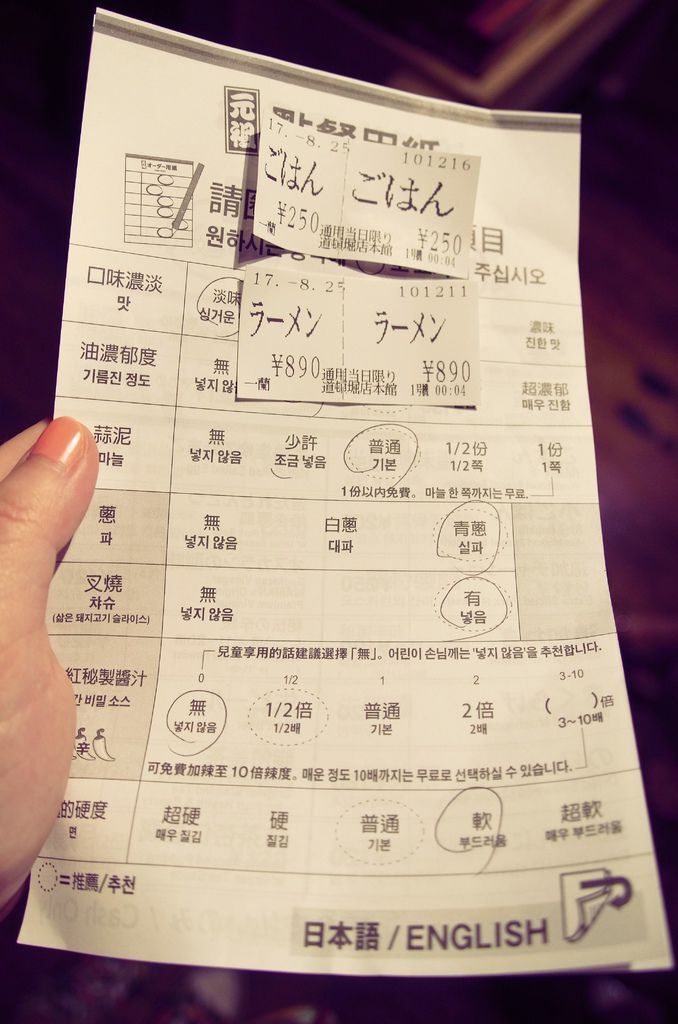 元祖
オーダー用紙
請
원하시는
項目
주십시오
17.-8.25 101216
ごはん ごはん
¥250 通用当日限り ¥250
一蘭 道頓堀店本館 1号機 00:04
17.-8.25 101211
ラーメン ラーメン
¥890 通用当日限り ¥890
一蘭 道頓堀店本館 1号機 00:04
口味濃淡 淡味 濃味
맛 싱거운 진한 맛
油濃郁度 無 超濃郁
기름진 정도 넣지 않 매우 진함
蒜泥 無 少許 普通 1/2份 1份
마늘 넣지 않음 조금 넣음 기본 1/2쪽 1쪽
1份以内免費。마늘 한 쪽까지는 무료.
蔥 無 白蔥 青蔥
파 넣지 않음 대파 실파
叉燒 無 有
챠슈 넣지 않음 넣음
(삶은 돼지고기 슬라이스)
兒童享用的話建議選擇「無」。어린이 손님께는 '넣지 않음'을 추천합니다.
0 1/2 1 2 3-10
紅秘製醬汁 無 1/2倍 普通 2倍 ( )倍
간 비밀 소스 넣지 않음 1/2배 기본 2배 3~10배
辛
可免費加辣至10倍辣度。매운 정도 10배까지는 무료로 선택하실 수 있습니다.
的硬度 超硬 硬 普通 軟 超軟
면 매우 질김 질김 기본 부드러움 매우 부드러움
=推薦/추천
日本語 / ENGLISH